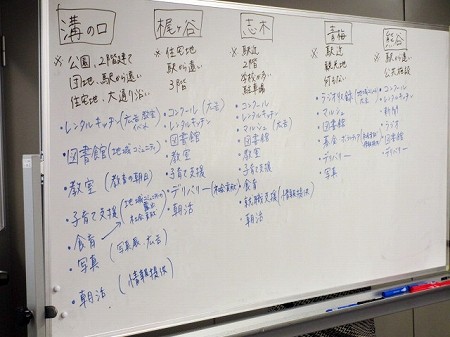 溝の口
※ 公園、2階建て
団地、駅から遠い
住宅地、大通り沿い
・レンタルキッチン(広告 教室
・図書館(地域コミュニティ)
・教室
・子育て支援
・食育
・写真 (写真展 広告)
・朝活 (情報提供)
梶ヶ谷
※ 住宅地
駅から遠い
3階
・コンクール(広告)
・レンタルキッチン
・図書館
・教室
・子育て支援
・デリバリー
・朝活
志木
※ 駅近
2階
学校が多い
駐車場
・コンクール
・レンタルキッチン
・マルシェ(広告)
・図書館
・教室
・子育て支援
・食育
・就職支援(情報提供)
・朝活
青梅
※ 駅近
観光地
何もない
・ラジオ収録
・マルシェ
・図書館
・教室
・デリバリー
・写真
熊谷
※ 駅近い
公共施設
・コンクール
・レンタルキッチン
・新聞
・ラジオ
・図書館
・デリバリー